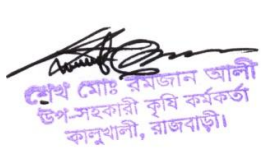 শেখ মোঃ রমজান আলী
উপ-সহকারী কৃষি কর্মকর্তা
কালুখালী, রাজবাড়ী।